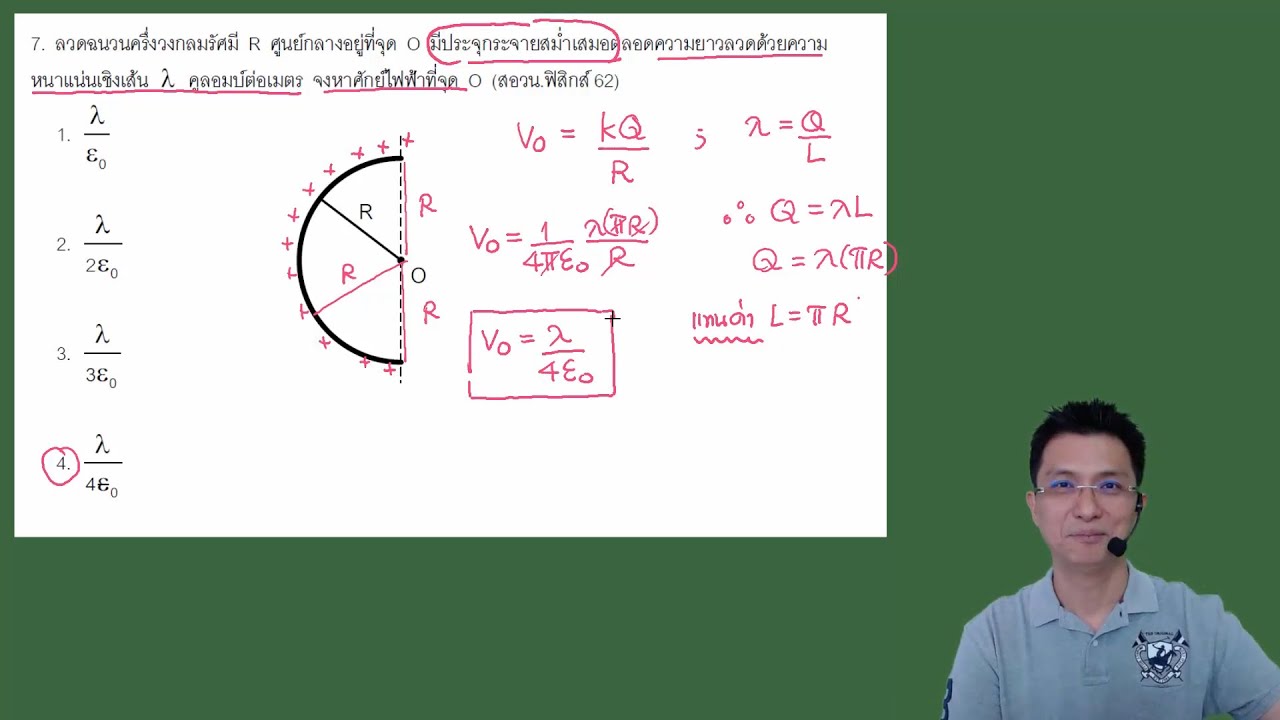 7. ลวดฉนวนครึ่งวงกลมรัศมี R ศูนย์กลางอยู่ที่จุด O มีประจุกระจายสม่ำเสมอตลอดความยาวลวดด้วยความ
หนาแน่นเชิงเส้น λ คูลอมบ์ต่อเมตร จงหาศักย์ไฟฟ้าที่จุด O (สอวน.ฟิสิกส์ 62)
1. λ/ε₀
2. λ/2ε₀
3. λ/3ε₀
4. λ/4ε₀
+ + + + + + + + + + + + +
R
R
R
R
O
V₀ = kQ/R ; λ = Q/L
∴ Q = λL
V₀ = 1/4πε₀ λ(πR)/R
Q = λ(πR)
แทนค่า L = πR
V₀ = λ/4ε₀